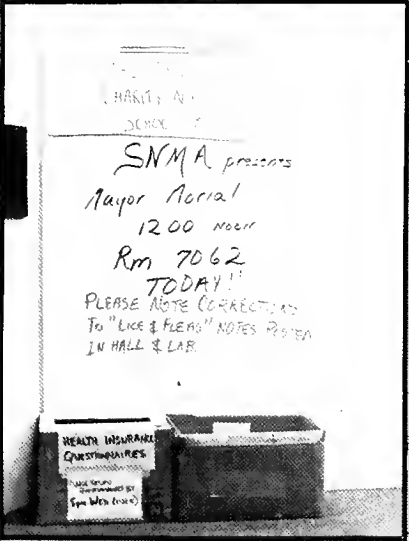 CHARITY
SCHOOL
SNMA presents
Mayor Morial
1200 Noon
Rm 7062
TODAY!!
PLEASE NOTE CORRECTIONS
To "LICE & FLEAS" NOTES POSTED
IN HALL & LAB
HEALTH INSURANCE
QUESTIONNAIRES